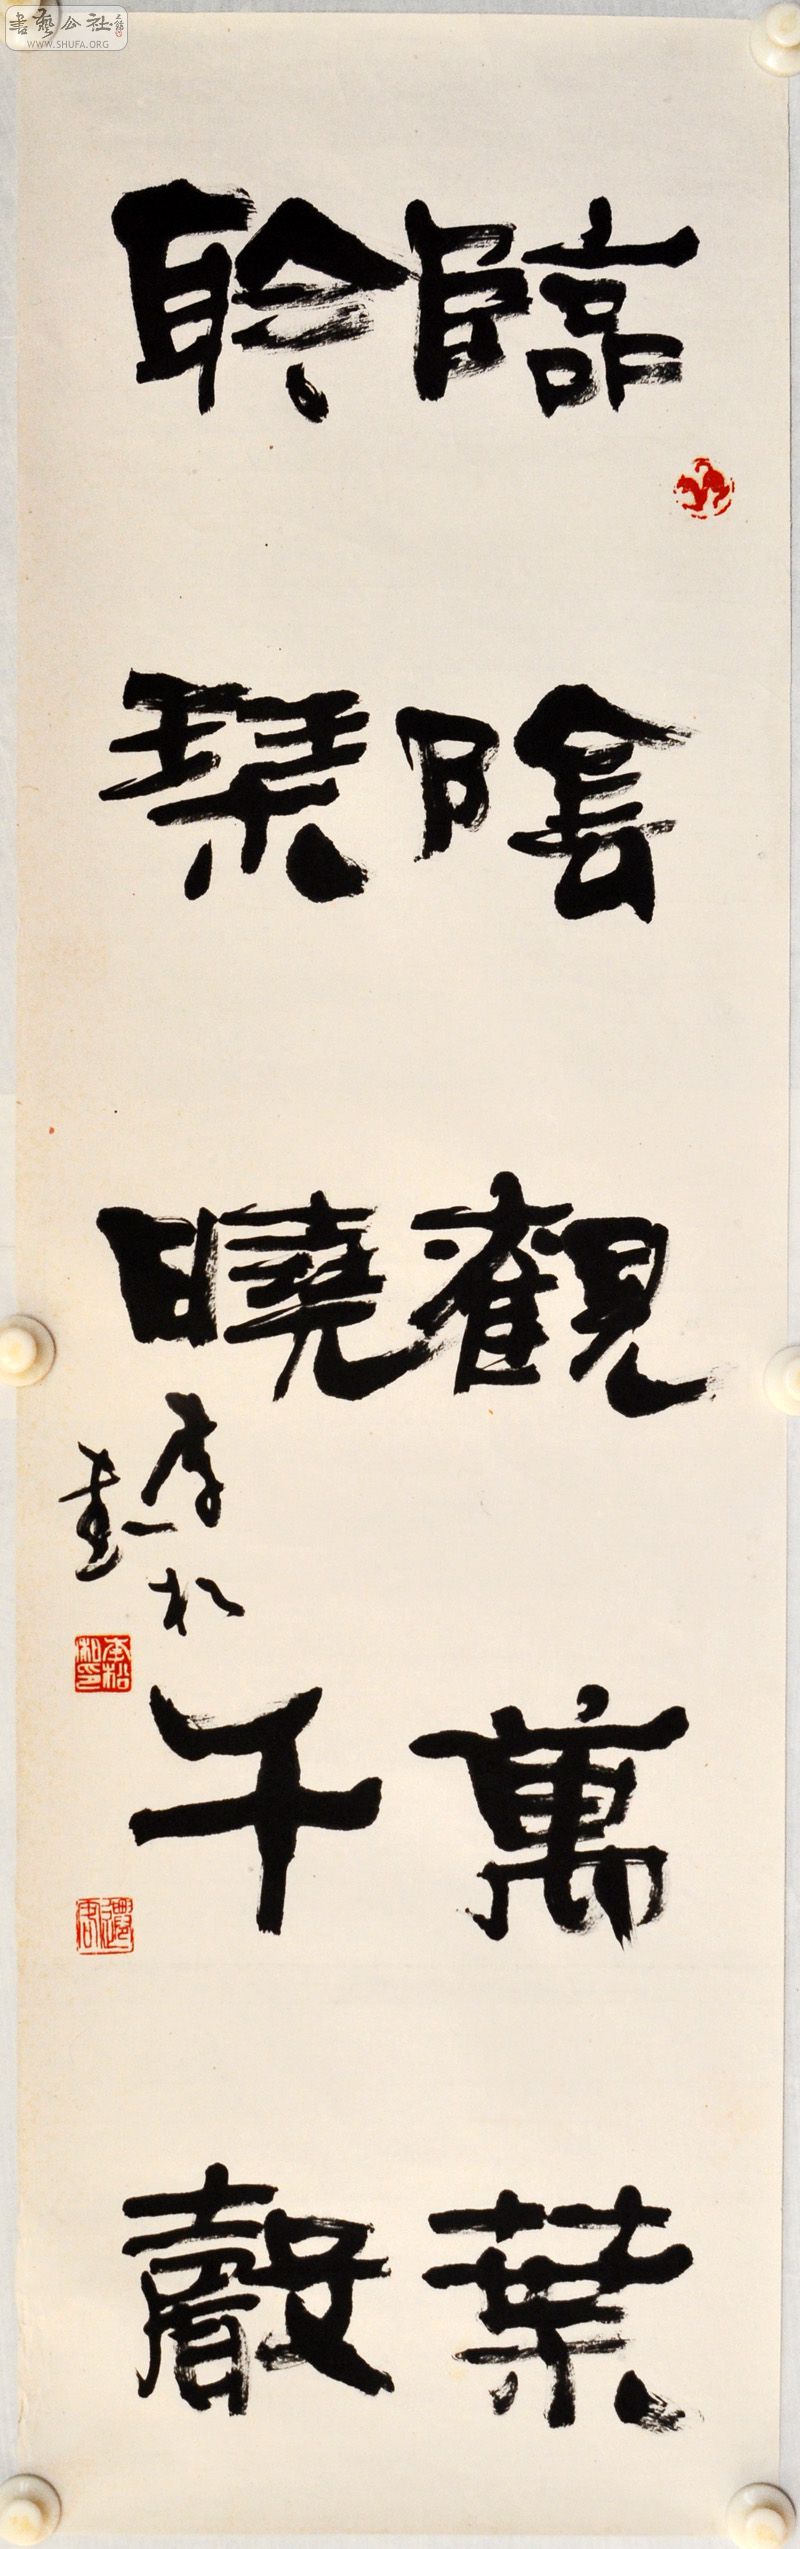 書藝公社
WWW.SHUFA.ORG
臨陰觀萬葉
聆琴曉千聲
李松
書
李松私印